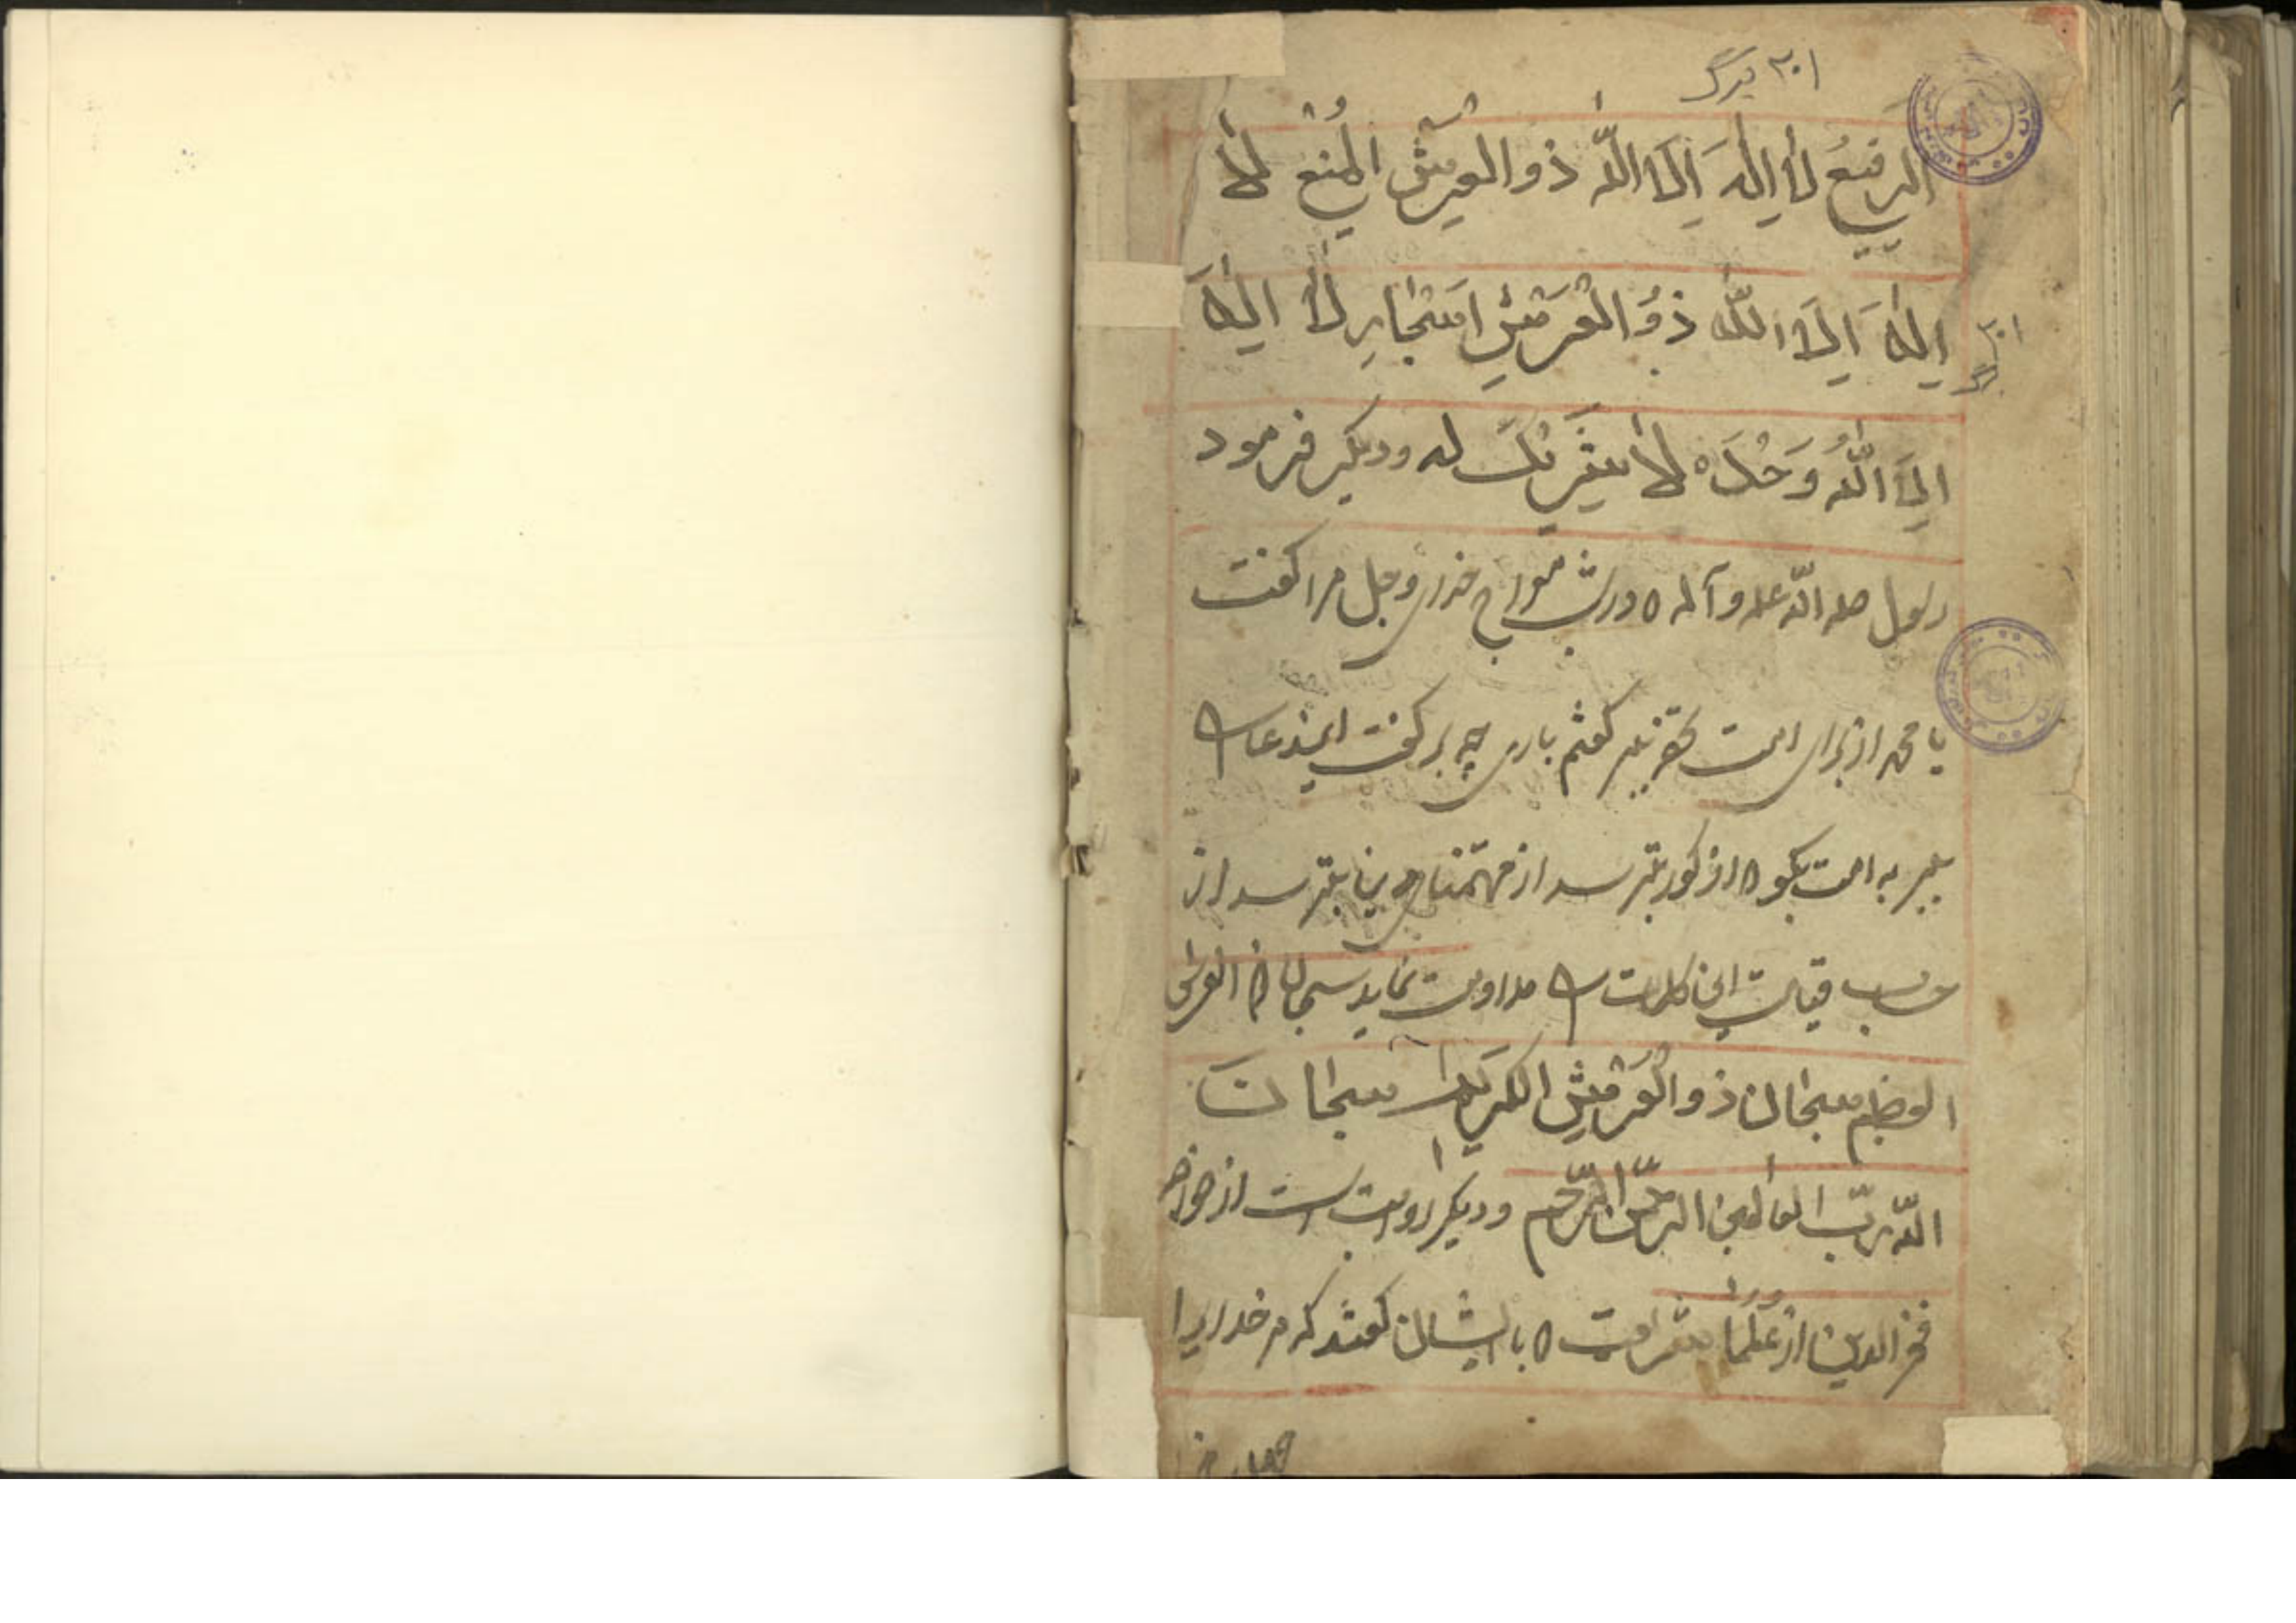 ۳۰۱ برگ
الرفیعُ لا اِلٰهَ اِلَا اللّٰه ذو العرش المُنع لا
اِلٰهَ اِلَا اللّٰه ذوُ العَرشِ لا الٰهَ
۳۰۱ برگ
الِاَ اللّٰهُ وَحْدَه لا شریک له ودیکر فرمود
رسول صلی اللّه علیه وآله در شب معراج خدای وجل مرا کفت
یا محمد از برای امت کفتم باری چه بر کفت ایندعا
ببر به امت بکو از کور بترسد از بترسد از
حساب قیامت این کلمات مداومت نماید سبحان العرش
العظیم سبحان ذو العَرشِ الکریم سبحان
اللّه ربّ العالمین الرحمن الرّحیم ودیکر روایت است از خواجه
فخر الدین از علما بایشان کفتند که مر خدایرا